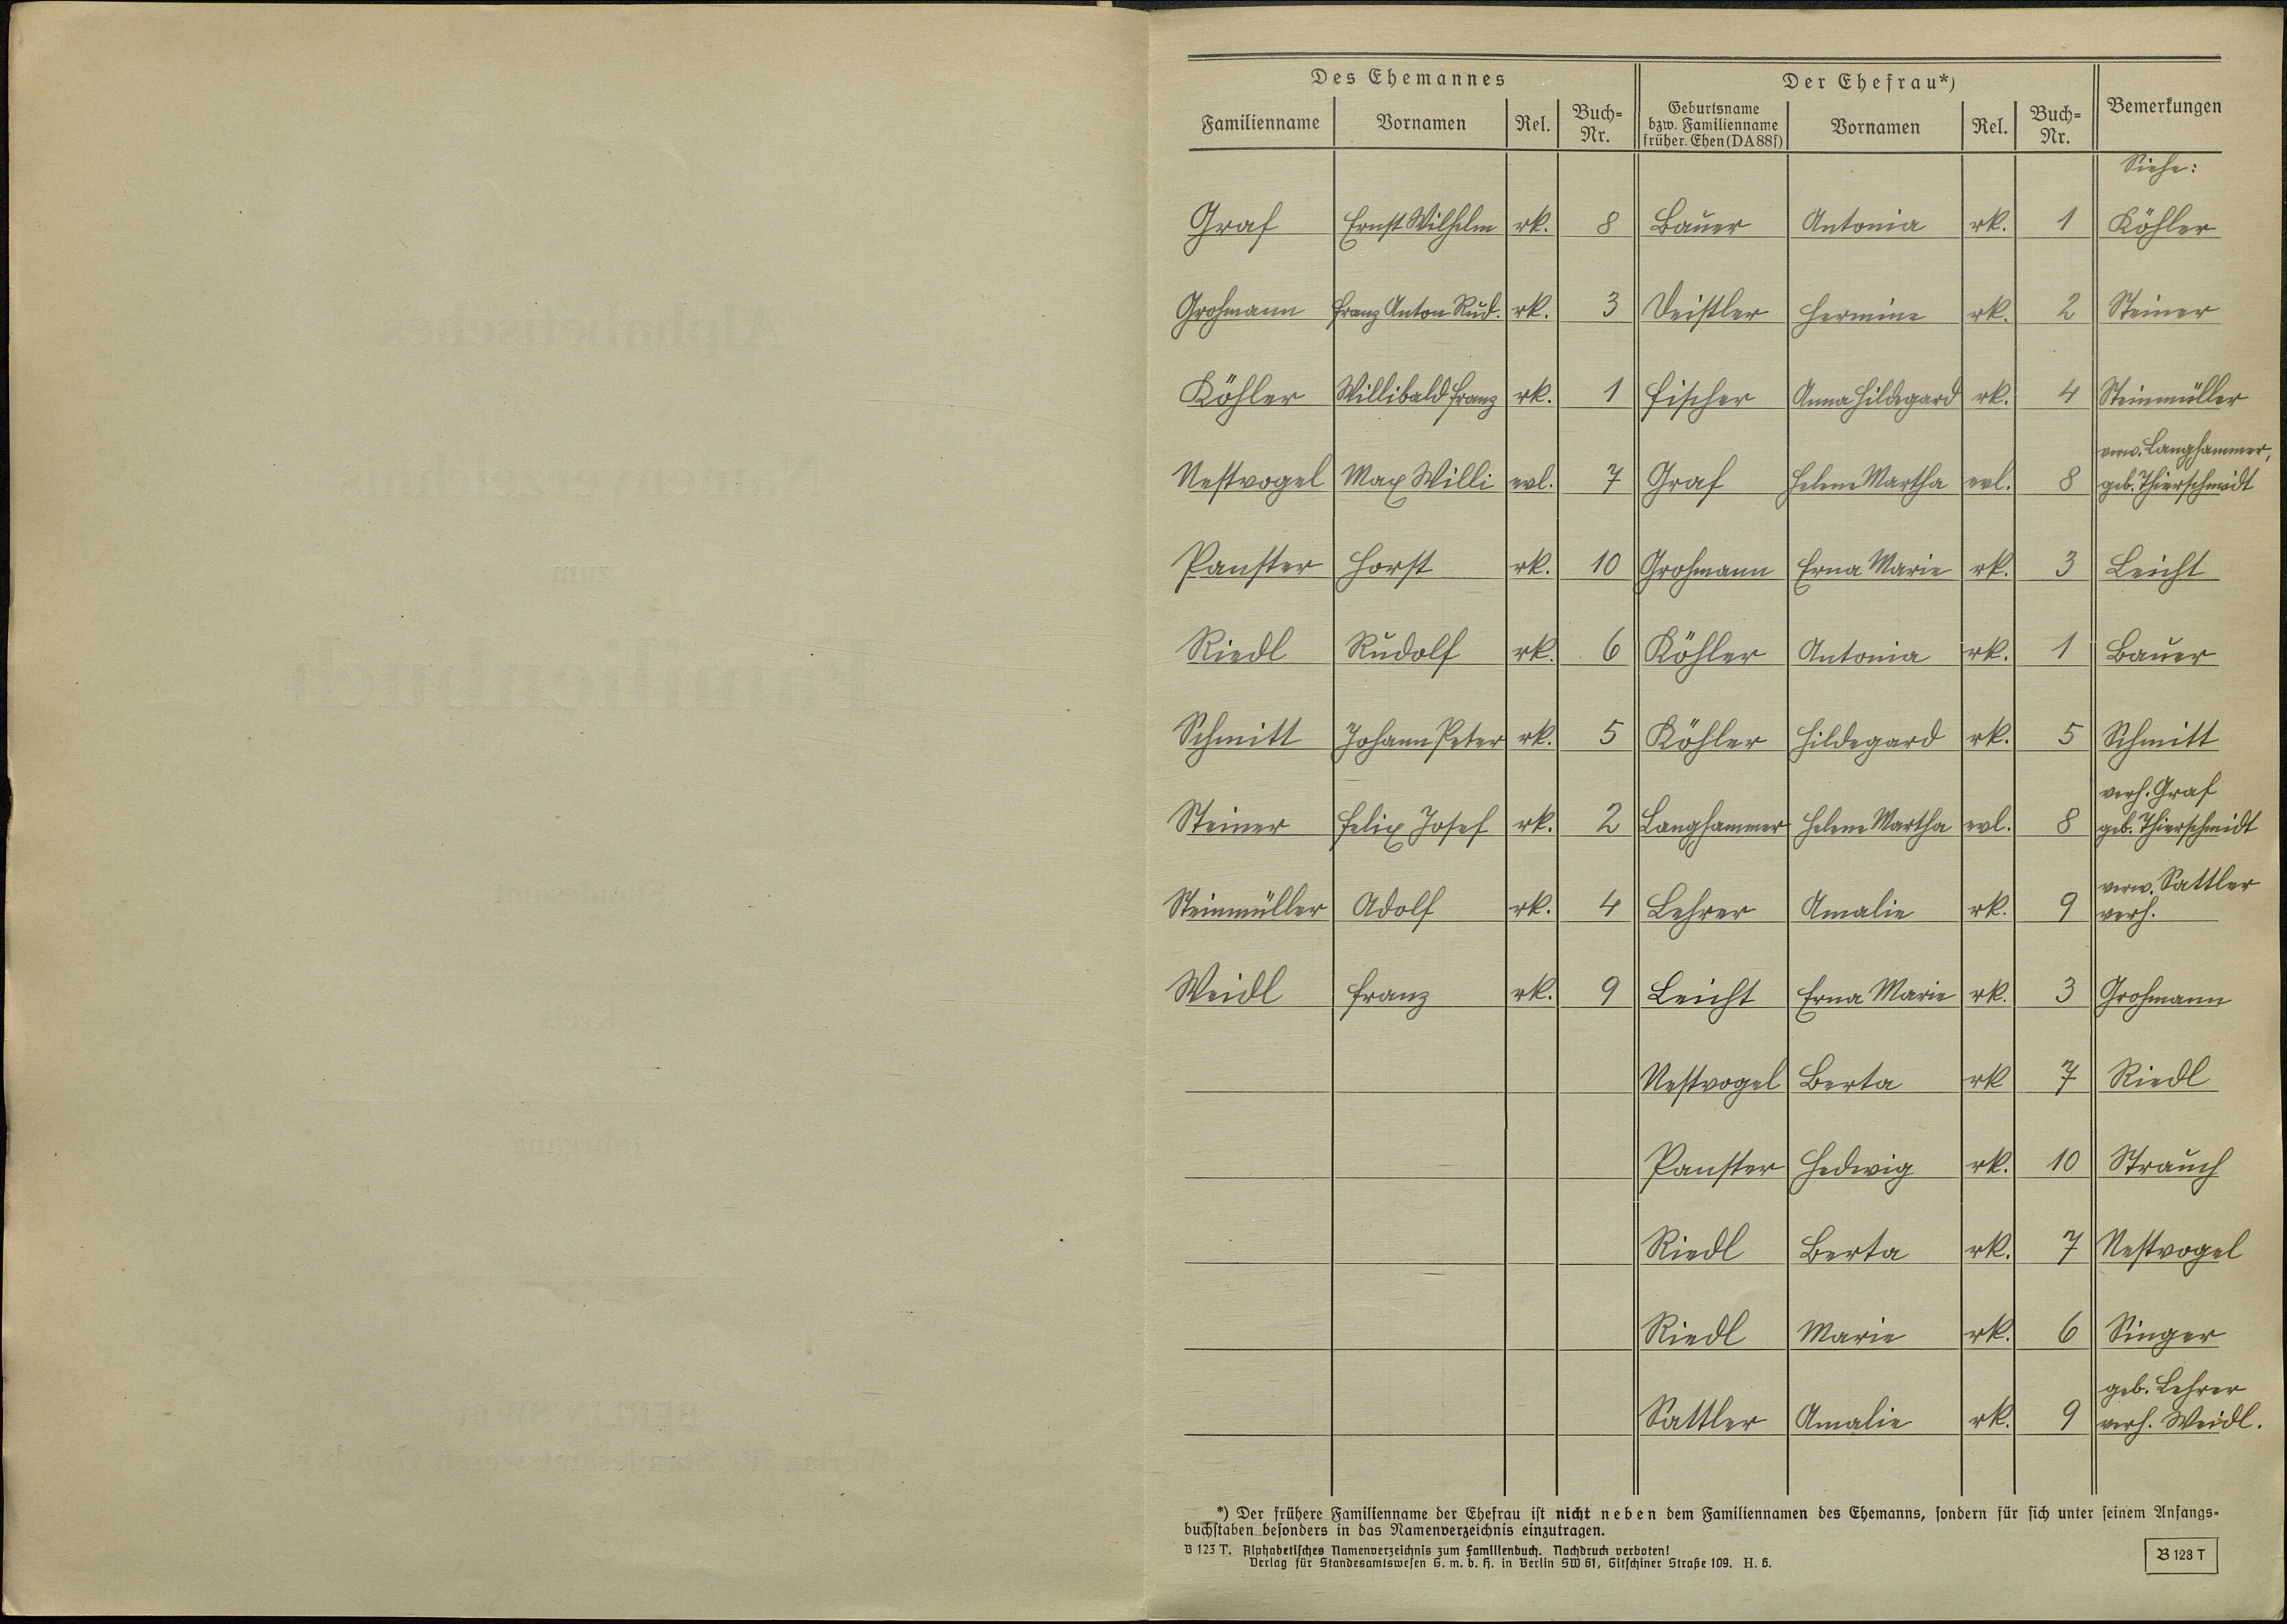 Des Ehemannes Der Ehefrau*)
Familienname Vornamen Rel. Buch=Nr. Geburtsname bzw. Familienname früher. Ehen (DA 88f) Vornamen Rel. Buch=Nr. Bemerkungen
Siehe:
Graf Ernst Wilhelm rk. 8 Bauer Antonia rk. 1 Köhler
Grohmann Franz Anton Rud. rk. 3 Deistler Hermine rk. 2 Steiner
Köhler Willibald Franz rk. 1 Fischer Anna Hildegard rk. 4 Steinmüller
verw. Langhammer,
Nestvogel Max Willi evl. 7 Graf Helene Martha evl. 8 geb. Thierschmidt
Panster Horst rk. 10 Grohmann Erna Marie rk. 3 Leicht
Riedl Rudolf rk. 6 Köhler Antonia rk. 1 Bauer
Schmitt Johann Peter rk. 5 Köhler Hildegard rk. 5 Schmitt
verh. Graf
Steiner Felix Josef rk. 2 Langhammer Helene Martha evl. 8 geb. Thierschmidt
verw. Sattler
Steinmüller Adolf rk. 4 Lehrer Amalie rk. 9 verh.
Weidl Franz rk. 9 Leicht Erna Marie rk. 3 Grohmann
Nestvogel Berta rk 7 Riedl
Panster Hedwig rk. 10 Strauch
Riedl Berta rk. 7 Nestvogel
Riedl Marie rk. 6 Singer
geb. Lehrer
Sattler Amalie rk. 9 verh. Weidl.
*) Der frühere Familienname der Ehefrau ist nicht neben dem Familiennamen des Ehemanns, sondern für sich unter seinem Anfangs=
buchstaben besonders in das Namenverzeichnis einzutragen.
B 123 T. Alphabetisches Namenverzeichnis zum Familienbuch. Nachdruck verboten!
Verlag für Standesamtswesen G. m. b. H. in Berlin SW 61, Gitschiner Straße 109. H. 6.
B 123 T